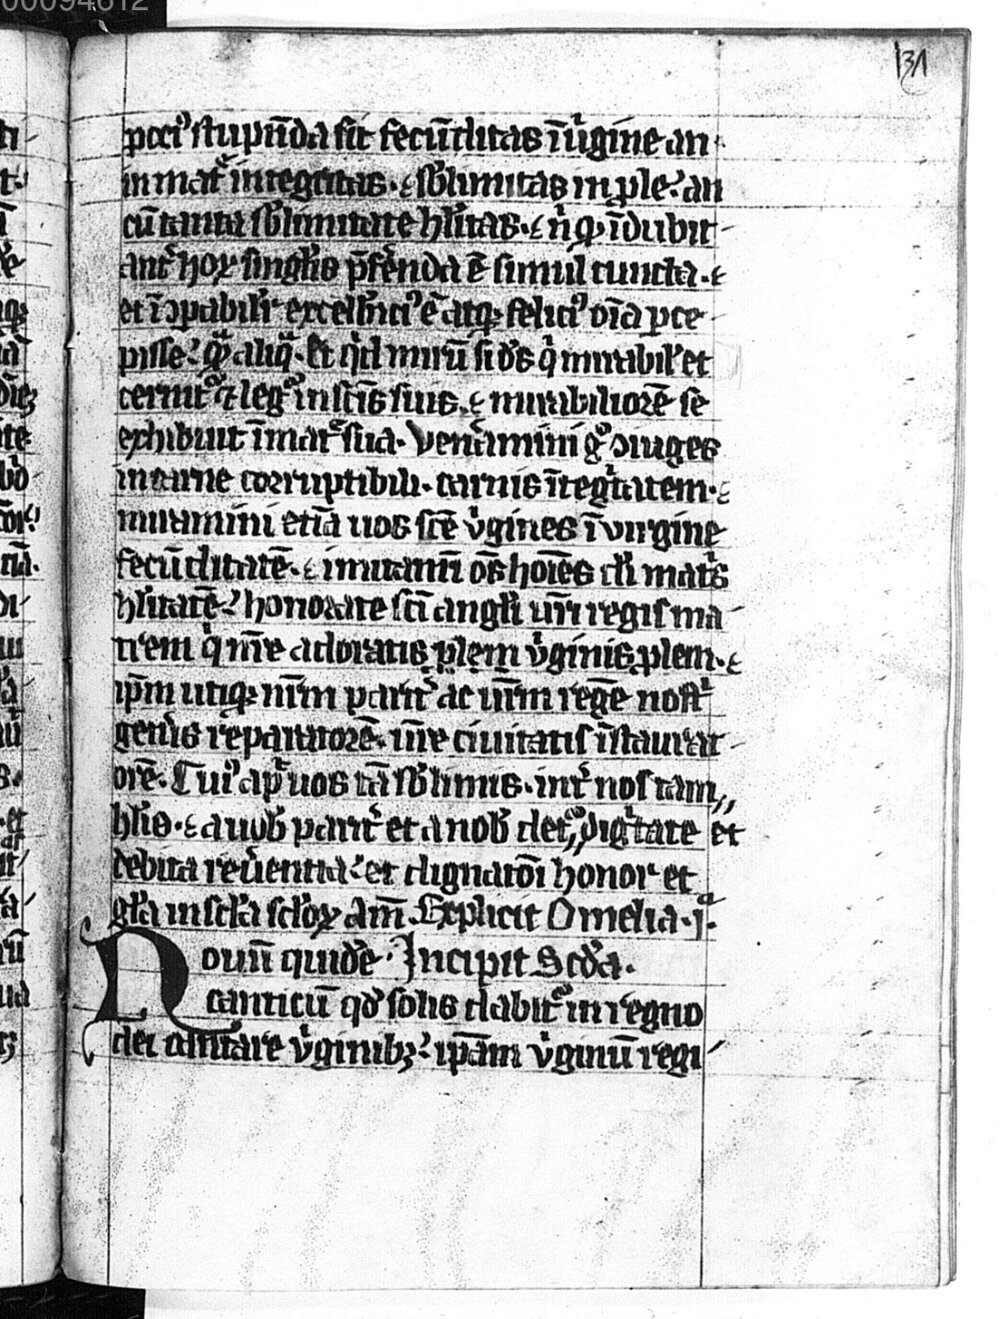 00094612
131
poci᷒ stupn̄da sit fecūditas ī ũgine an
in mat᷑ integritas · ⁊ sb̄limitas in ꝓle · an
cū tanta sb̄limitate hūlitas · ⁊ n̄ qͥ īdubit
ant᷑ hoꝝ singl̓is p̄ferēnda ē simul cuncta · ⁊
et īꝯpabilit᷑ excellēnci᷒ ē atqꝫ felici᷒ oīa pce
pisse qᷓ aliqᷓ · Et qͥd mirū si de᷒s qͥ mirabil᷒ et
cernit᷑ ⁊ leg᷑ in scīs suis · ⁊ mirabiliorē se
exhibuit ī mat᷑ sua · Venͣamini gͦ ꝯiuges
in carne corruptibili · carnis ītegͥtatem · ⁊
miramini etiā uos sc̄e v̓gines ī virgine
fecūditatē · ⁊ imitamī oēs hoīes di mat̓s
hūlitatē honorate sc̄i angl̓i ur̄i regis ma
trem qͥ nr̄e adoratis ꝓlem v̓ginis ꝓlem · ⁊
ip̄m utiqꝫ nr̄m parit᷑ ac ur̄m regē nost᷑
gen̓is reparatorē · ur̄e ciuitatis īstaurat
orē · Cui᷒ ap᷒ uos tā sb̄limis · int᷑ nos tam
hūlis · ⁊ a uob̄ parit᷑ et a nob̄ det᷑ digͥtate et
debita reūentia et dignatōi honor et
gl̓a in scl̓a scl̓oꝝ Am̄ · Explicit Omelia · jᵃ ·
Nouū quidē · Incipit Scd̄a ·
canticū qd̓ solis dabit᷑ in regno
dei cantare v̓ginibꝫ ip̄am v̓ginū regi